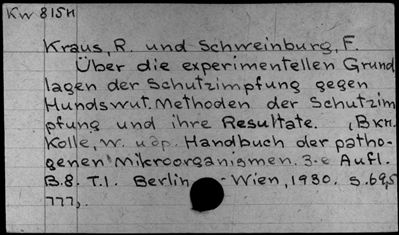 Kw 815н
Kraus, R. und Schweinburg, F.
Über die experimentellen Grund
lagen der Schutzimpfung gegen
Hundswut. Methoden der Schutzim
pfung und ihre Resultate. (В кн.
Kolle, W. и др. Handbuch der patho-
genen Mikroorganismen. 3-е Aufl.
B.8. T.1. Berlin - Wien, 1930. S. 695
777).